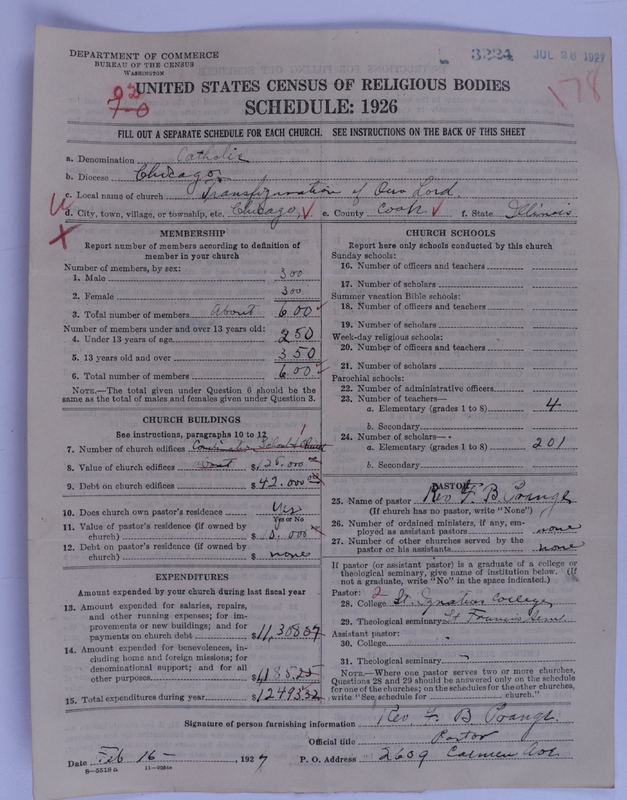 DEPARTMENT OF COMMERCE
BUREAU OF THE CENSUS
WASHINGTON
3224
JUL 26 1927
178
UNITED STATES CENSUS OF RELIGIOUS BODIES
SCHEDULE: 1926
FILL OUT A SEPARATE SCHEDULE FOR EACH CHURCH. SEE INSTRUCTIONS ON THE BACK OF THIS SHEET
a. Denomination Catholic
b. Diocese Chicago
c. Local name of church Transfiguration of Our Lord.
d. City, town, village, or township, etc. Chicago, e. County Cook f. State Illinois
MEMBERSHIP
Report number of members according to definition of
member in your church
Number of members, by sex:
1. Male 300
2. Female 300
3. Total number of members About 600
Number of members under and over 13 years old:
4. Under 13 years of age 250
5. 13 years old and over 350
6. Total number of members 600
NOTE.—The total given under Question 6 should be the
same as the total of males and females given under Question 3.
CHURCH BUILDINGS
See instructions, paragraphs 10 to 12
7. Number of church edifices Combination School & Church 1
8. Value of church edifices about $125,000
9. Debt on church edifices $42,000
10. Does church own pastor's residence Yes
Yes or No
11. Value of pastor's residence (if owned by
church) $
12. Debt on pastor's residence (if owned by
church) $ none
EXPENDITURES
Amount expended by your church during last fiscal year
13. Amount expended for salaries, repairs,
and other running expenses; for im-
provements or new buildings; and for
payments on church debt $
14. Amount expended for benevolences, in-
cluding home and foreign missions; for
denominational support; and for all
other purposes $
15. Total expenditures during year $12493.32
CHURCH SCHOOLS
Report here only schools conducted by this church
Sunday schools:
16. Number of officers and teachers
17. Number of scholars
Summer vacation Bible schools:
18. Number of officers and teachers
19. Number of scholars
Week-day religious schools:
20. Number of officers and teachers
21. Number of scholars
Parochial schools:
22. Number of administrative officers
23. Number of teachers—
a. Elementary (grades 1 to 8) 4
b. Secondary
24. Number of scholars—
a. Elementary (grades 1 to 8) 201
b. Secondary
PASTOR
25. Name of pastor Rev F. B. Prange
(If church has no pastor, write "None")
26. Number of ordained ministers, if any, em-
ployed as assistant pastors none
27. Number of other churches served by the
pastor or his assistants none
If pastor (or assistant pastor) is a graduate of a college or
theological seminary, give name of institution below. (If
not a graduate, write "No" in the space indicated.)
Pastor: 2
28. College St. Ignatius College
29. Theological seminary St Francis Sem.
Assistant pastor:
30. College -
31. Theological seminary -
NOTE.—Where one pastor serves two or more churches,
Questions 28 and 29 should be answered only on the schedule
for one of the churches; on the schedules for the other churches,
write "See schedule for church."
Signature of person furnishing information Rev F B Prange
Official title Pastor
Date Feb 16 -, 1927 P. O. Address 2609 Carmen Ave.
8-5518a